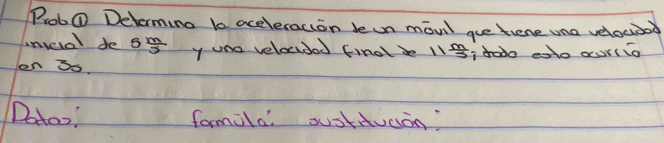 Prob ① Determina la aceleración de un móvil que tiene una velocidad
inicial de 5 m/s y una velocidad final de 11 m/s; todo esto ocurrió
en 3s.
Datos: formula: sustitución: